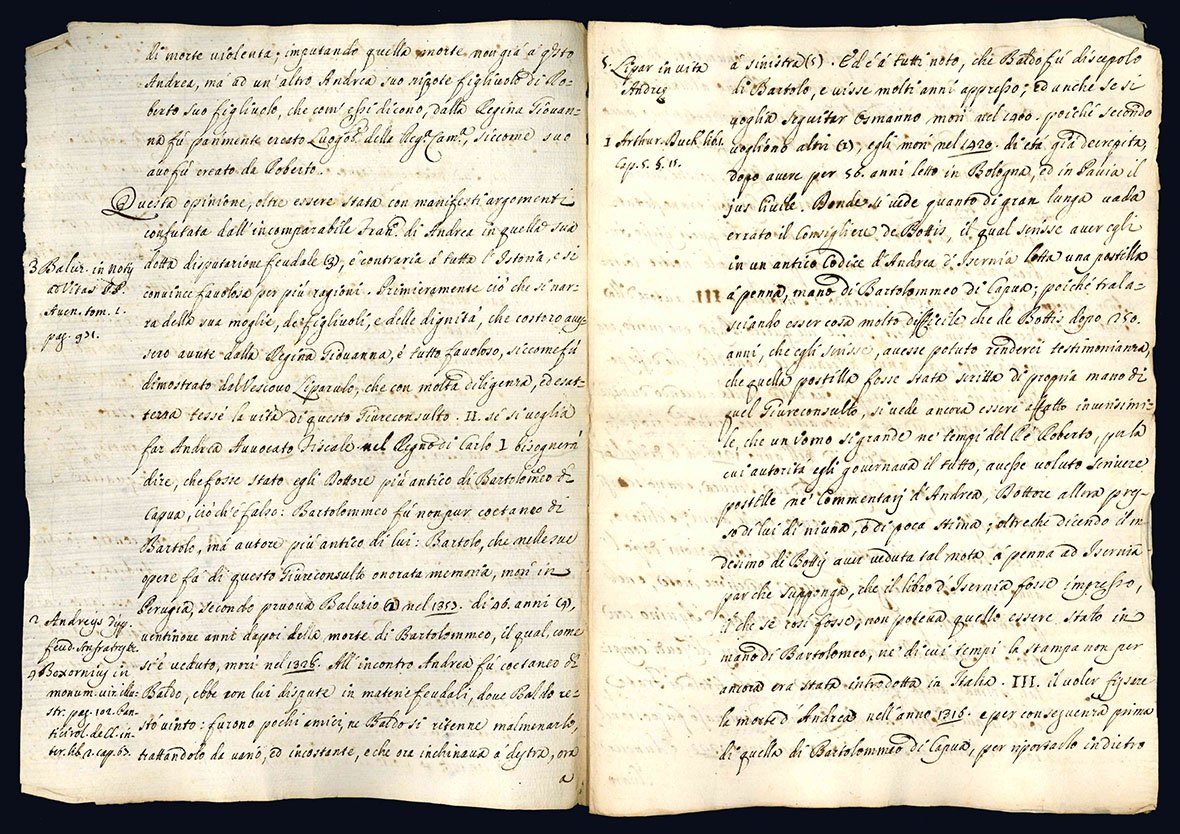 di morte violenta; imputando quella morte non già á qsto
Andrea, ma ad un'altro Andrea suo nipote figliuolo di Ro-
berto suo figliuolo, che com' essi dicono, dalla Regina Giovan-
na fú parimente creato Luogot.e della Reg.a Cam.a, siccome suo
avo fú creato da Roberto.
Questa opinione, oltre essere stata con manifesti argomenti
confutata dall'incomparabile Fran.o di Andrea in quella sua
dotta disputazione feudale (2), é contraria á tutta l'Istoria, e si
convince favolosa per piú ragioni. Primieramente ció che si nar-
ra della sua moglie, de' figliuoli, e delle dignitá, che costoro aves-
sero avute dalla Regina Giovanna, é tutto favoloso, siccome fú
dimostrato dal Vescovo Liparulo, che con molta diligenza, ed esat-
tezza tessé la vita di questo Giureconsulto. II. se si voglia
far Andrea Avvocato Fiscale nel Regno di Carlo I bisognerá
dire, che fosse stato egli Dottore piú antico di Bartolomeo di
Capua, ció ch'é falso: Bartolommeo fú non pur coetaneo di
Bartolo, má autore piú antico di lui: Bartolo, che nelle sue
opere fa di questo Giureconsulto onorata memoria, morì in
Perugia, secondo pruova Baluzio (3) nel 1355. di 46. anni (4),
ventinove anni dapoi della morte di Bartolommeo, il qual, come
si é veduto, morì nel 1326. All'incontro Andrea fú coetaneo di
Baldo, ebbe con lui dispute in materie feudali, dove Baldo re-
stó vinto: furono pochi amici, ne Baldo si ritenne malmenarlo,
trattandolo da vario, ed incostante, e che ora inchinava á destra, ora
a
3 Baluz. in notis
ad Vitas PP.
Aven. tom. 1.
pag. 931.
2 Andreys disp.
feud. An fratres &c.
4 Boxornius in
monum. vir. illu-
str. pag. 102. Pan-
cirol. de cl. in-
ter. lib. 2. cap. 67.
á sinistra (5). Ed é á tutti noto, che Baldo fú discepolo
di Bartolo, e visse molti anni appresso; ed anche se si
voglia seguitar Osmanno morì nel 1400. poiché secondo
vogliono altri (1), egli morì nel 1420. di etá giá decrepita,
dopo avere per 56. anni letto in Bologna, ed in Pavia il
jus Civile. Donde si vede quanto di gran lunga vada
errato il Consigliere de Bottis, il qual scrisse aver egli
in un antico Codice d'Andrea d'Isernia letta una postilla
á penna, mano di Bartolommeo di Capua; poiché trala-
sciando esser cosa molto difficile che de Bottis dopo 250.
anni, che egli scrisse, avesse potuto renderci testimonianza,
che quella postilla fosse stata scritta di propria mano di
quel Giureconsulto, si vede ancora essere affatto inverisimi-
le, che un uomo si grande ne' tempi del Ré Roberto, per la
cui autoritá egli governava il tutto, avesse voluto scrivere
postille ne' Commentarj d'Andrea, Dottore allora pres-
so di lui di niuna, ó di poca stima; oltreche dicendo il me-
desimo di Bottis aver veduta tal nota á penna ad Isernia
par che supponga, che il libro d'Isernia fosse impresso,
il che se cosi fosse, non poteva quello essere stato in
mano di Bartolomeo, ne' di cui tempi la stampa non per
ancora era stata introdotta in Italia. III. il voler fissare
la morte d'Andrea nell'anno 1316. e per conseguenza prima
di quella di Bartolommeo di Capua, per riportarlo in dietro
5. Lipar in vita
Andrey
1 Arthur. Duck. lib. 1.
Cap. 5. §. 15.